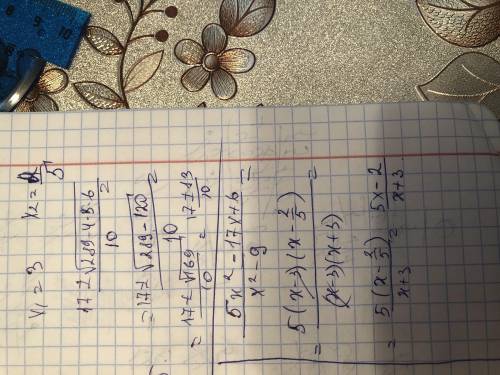 x₁ = 3   x₂ = 2/5
(17 ± √(289-4·5·6))/10 =
= (17 ± √(289-120))/10 =
= (17 ± √169)/10 = (17 ± 13)/10
(5x² - 17x + 6)/(x² - 9) =
= 5(x-3)(x - 2/5)/((x-3)(x+3)) =
= 5(x - 2/5)/(x+3) = (5x-2)/(x+3)